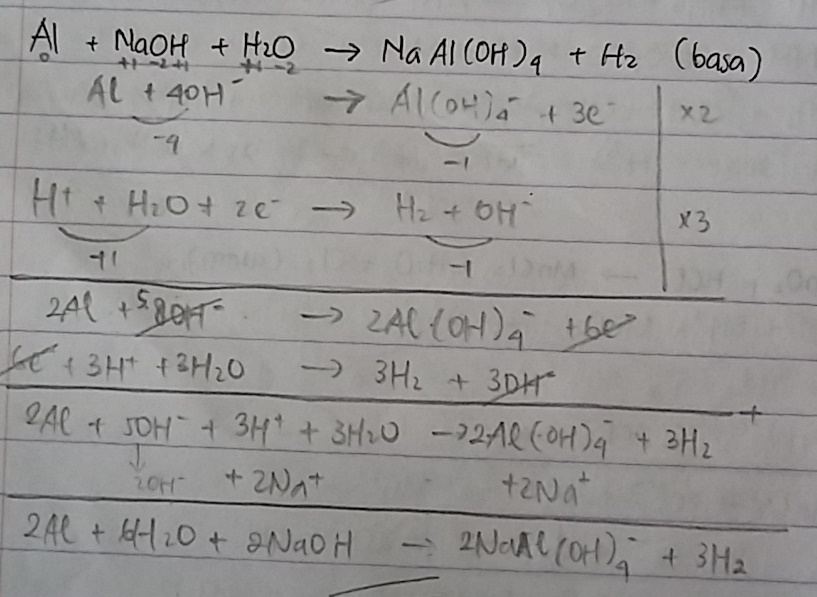 Al + NaOH + H2O → NaAl(OH)4 + H2 (basa)
0 +1 -2 +1 +1 -2
Al + 4OH⁻ → Al(OH)4⁻ + 3e⁻ | x2
-4 -1
H⁺ + H2O + 2e⁻ → H2 + OH⁻ | x3
+1 -1
2Al + 5 8OH⁻ → 2Al(OH)4⁻ + 6e⁻
6e⁻ + 3H⁺ + 3H2O → 3H2 + 3OH⁻
+
2Al + 5OH⁻ + 3H⁺ + 3H2O → 2Al(OH)4⁻ + 3H2
↓
2OH⁻ + 2Na⁺ +2Na⁺
2Al + 6H2O + 2NaOH → 2NaAl(OH)4⁻ + 3H2